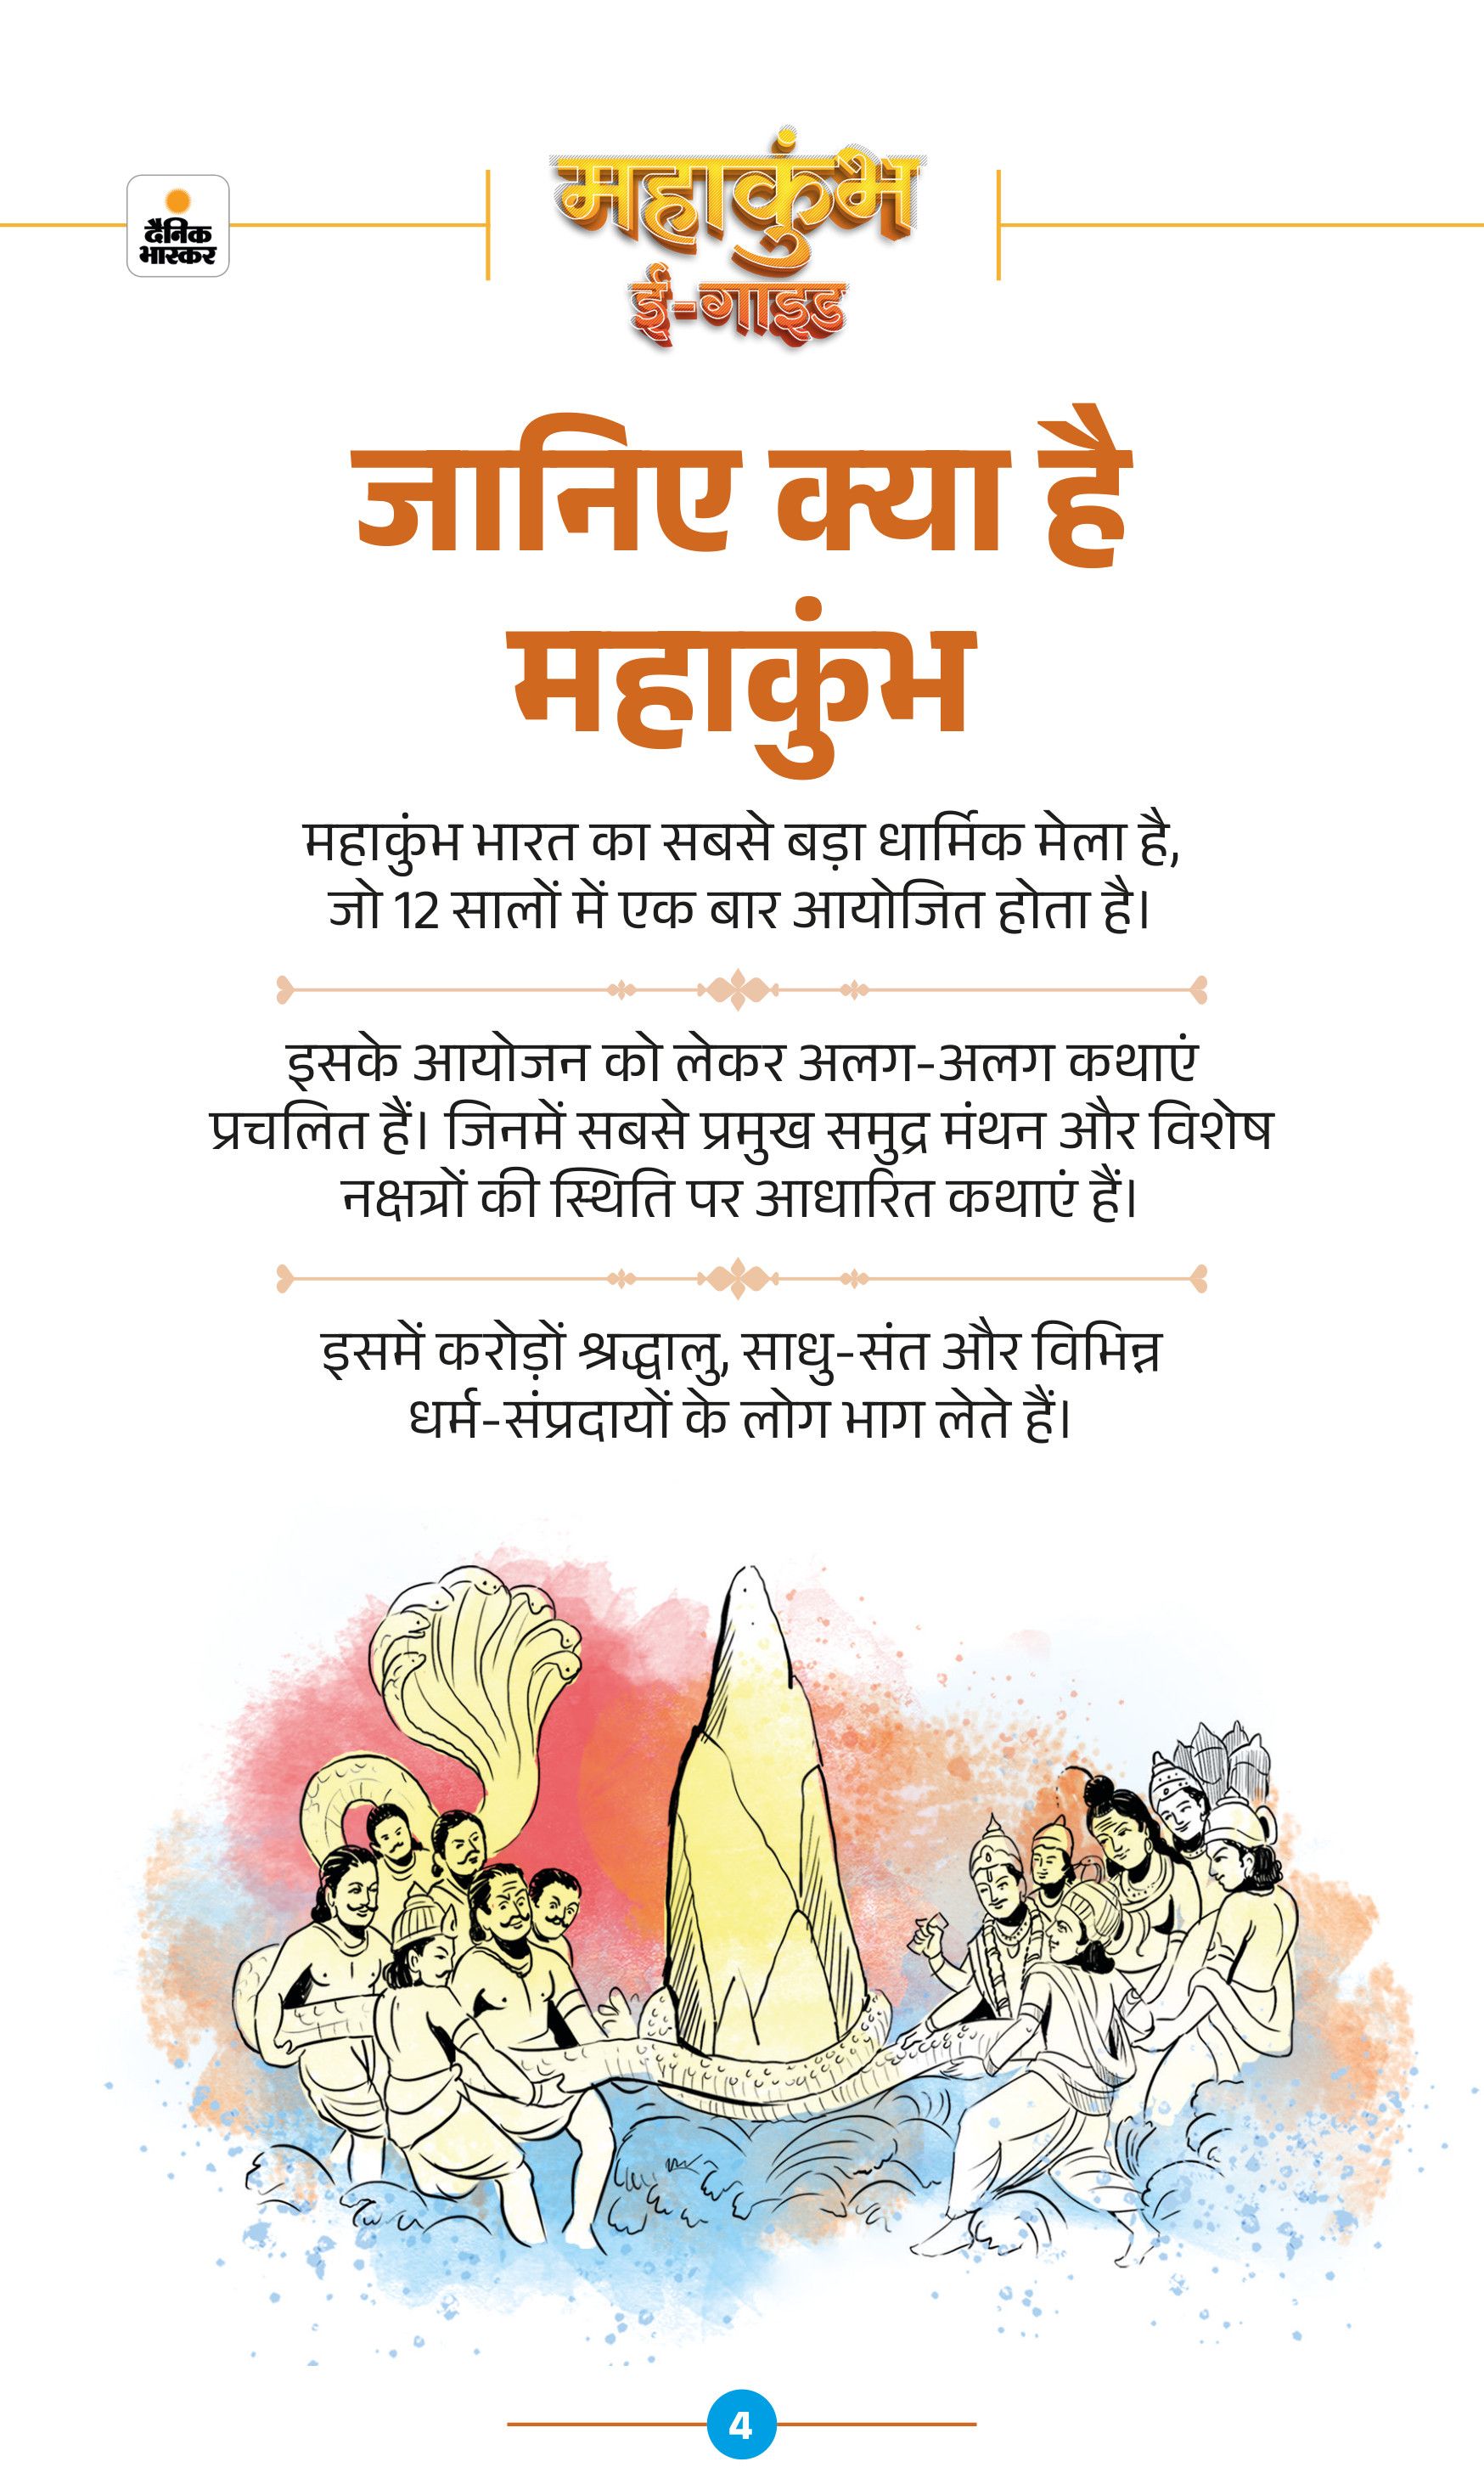 दैनिक
भास्कर
महाकुंभ
ई-गाइड
जानिए क्या है
महाकुंभ
महाकुंभ भारत का सबसे बड़ा धार्मिक मेला है,
जो 12 सालों में एक बार आयोजित होता है।
इसके आयोजन को लेकर अलग-अलग कथाएं
प्रचलित हैं। जिनमें सबसे प्रमुख समुद्र मंथन और विशेष
नक्षत्रों की स्थिति पर आधारित कथाएं हैं।
इसमें करोड़ों श्रद्धालु, साधु-संत और विभिन्न
धर्म-संप्रदायों के लोग भाग लेते हैं।
4